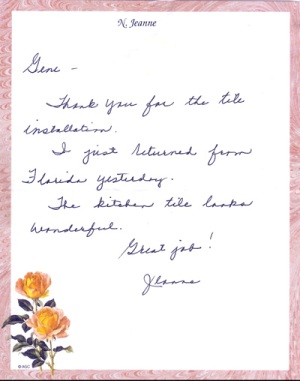 N. Jeanne
Gene -
Thank you for the tile
installation.
I just returned from
Florida yesterday.
The kitchen tile looks
wonderful.
Great job!
Jeanne